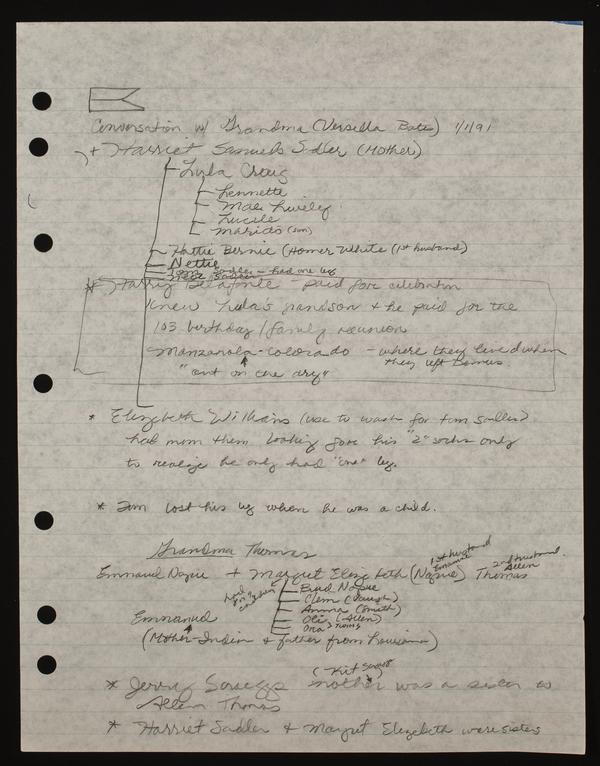 Conversation w/ Grandma (Versilla Bate) 1/1/91
+ Harriet Samuels Sadler (Mother)
Lula Craig
Lennette
Mae
Lucile
(son)
Hattie Bernie (Homer White (1st husband)
Nettie
Tom Sadler - had one leg
* Harry Belafonte - paid for celebration
knew Lula's grandson & he paid for the
103 birthday / family reunion
Manzanola - Colorado - where they lived when
they left
"Out on the dry"
* Elizabeth Williams (use to wash for tom sadler)
had mom them looking for his "2" socks only
to realize he only had "one" leg.
* Tom lost his leg when he was a child.
Grandma Thomas
1st husband
2nd husband
Allen
Emmanuel + Margret Elizabeth ( ) Thomas
Brad
Clem
Anna (Smith)
Oli (Allen)
Ora > Twins
Emmanuel
(Mother-Indian & father from Louisiana)
* Jerry mother was a sister to
Allen Thomas
* Harriet Sadler & Margret Elizabeth were sisters